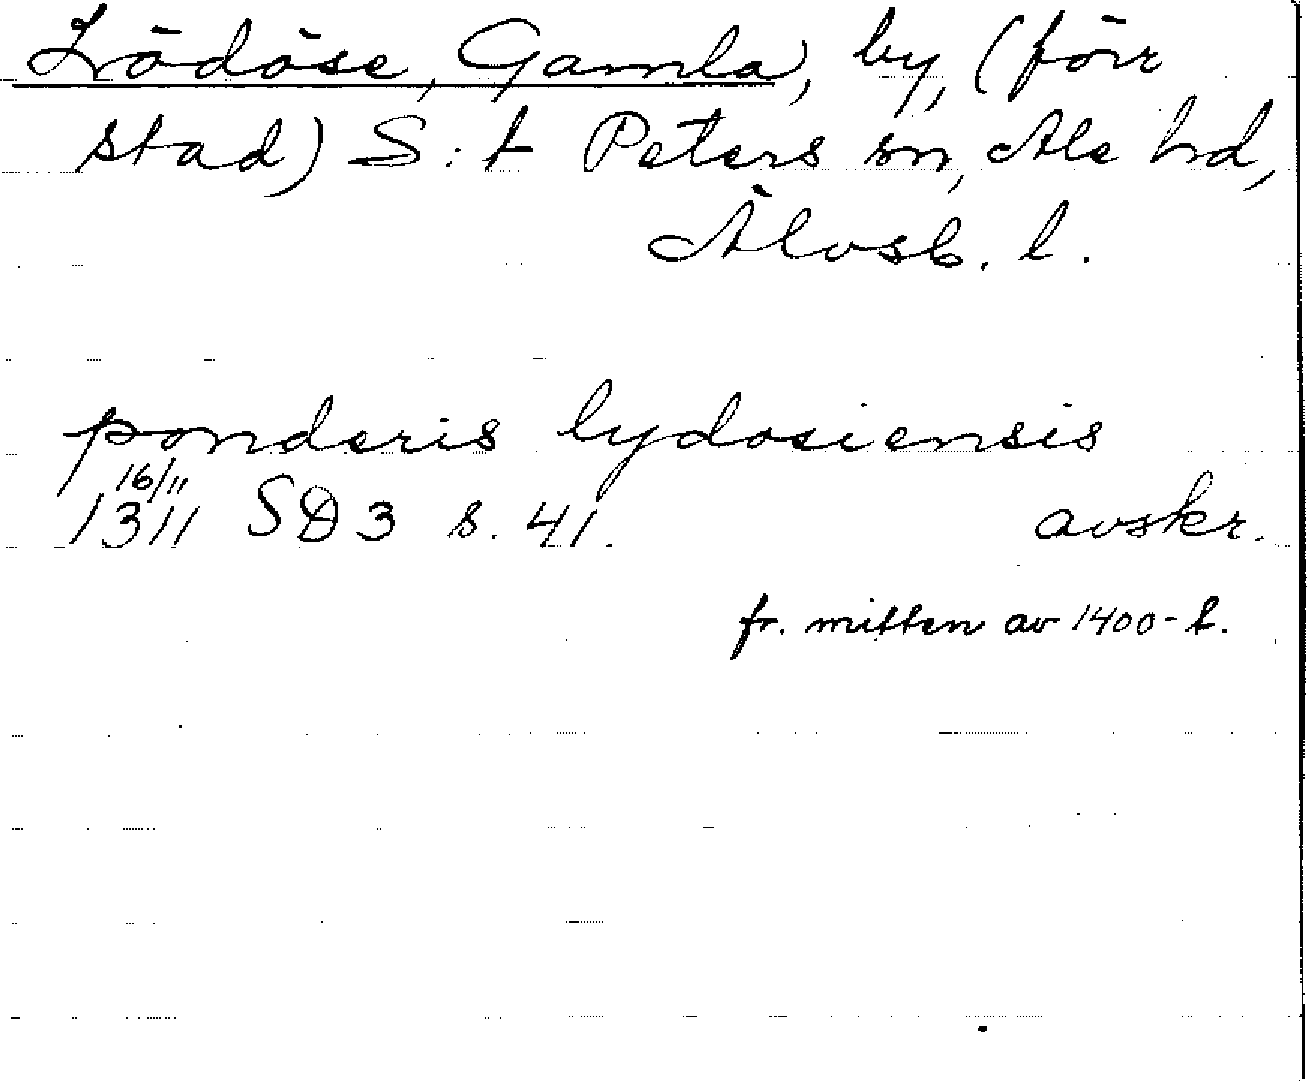 Lödöse, Gamla, by, (förr
stad) S:t Peters sn, Ale hd,
Älvsb. l.
ponderis lydosiensis
16/11
1311 SD 3 s. 41. avskr.
fr. mitten av 1400-t.